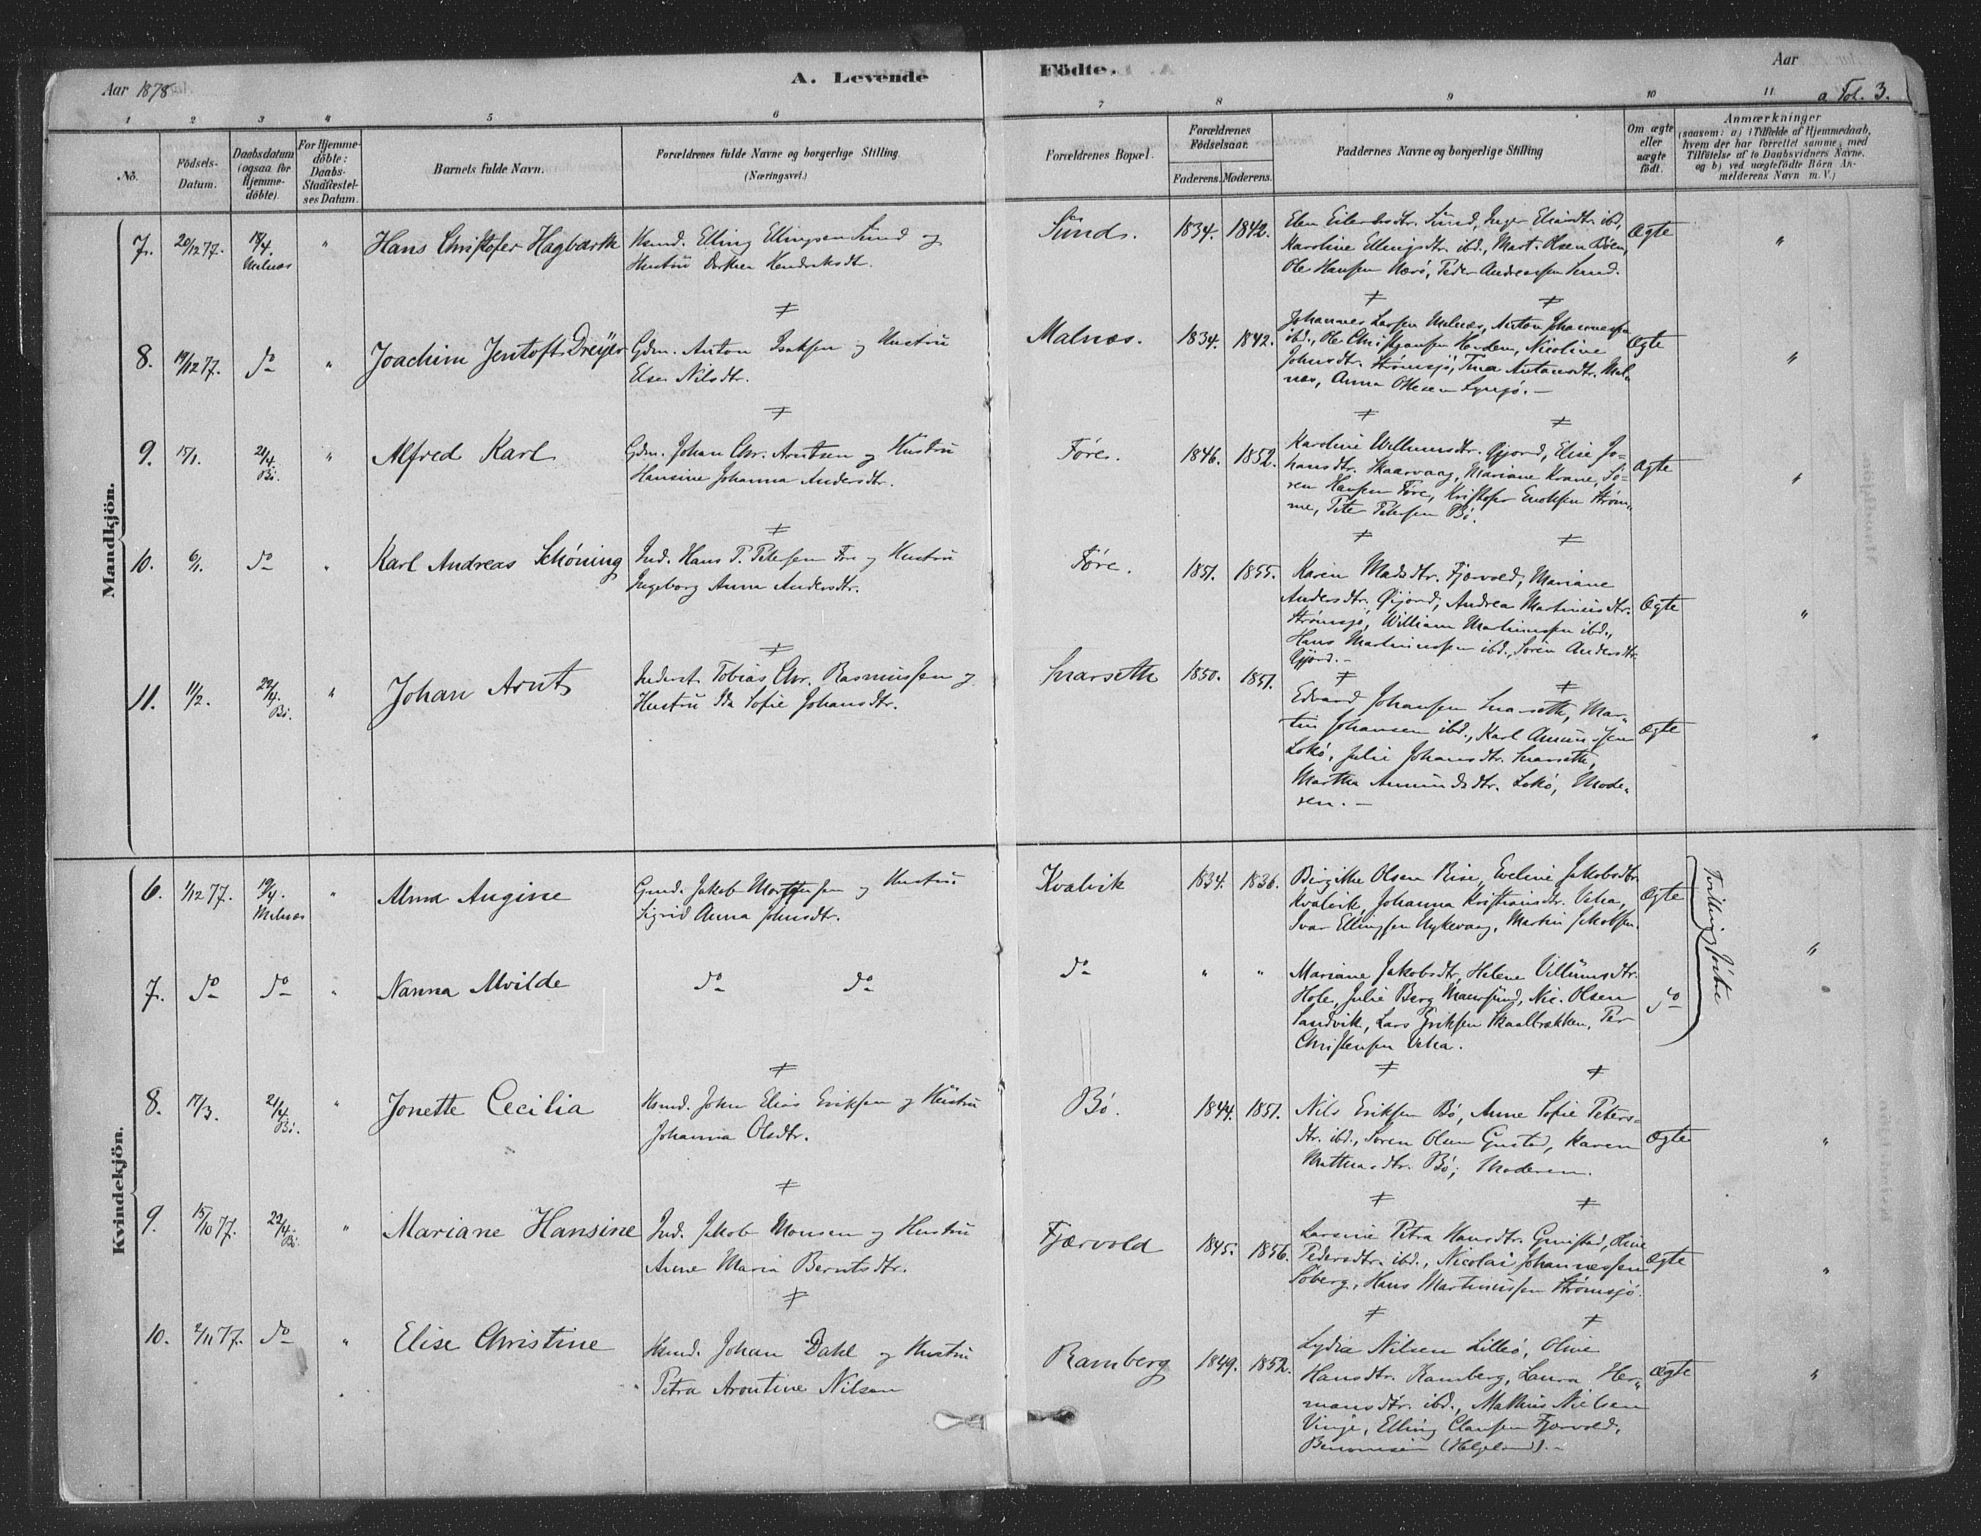 Aar 1878
A. Levende
Födte.
Aar
a Fol. 3.
1 2 3 4 5 6 7 8 9 10 11
No.
Födsels-Datum.
Daabsdatum (ogsaa for Hjemme-döbte).
For Hjemme-döbte: Daabs-Stadfæstel-ses Datum.
Barnets fulde Navn.
Forældrenes fulde Navne og borgerlige Stilling (Næringsvei.)
Forældrenes Bopæl.
Forældrenes Födselsaar.
Faderens. Moderens.
Faddernes Navne og borgerlige Stilling
Om ægte eller uægte födt.
Anmærkninger
(saasom: a) i Tilfælde af Hjemmedaab, hvem der har forrettet samme, med Tilföielse af to Daabsvidners Navne, og b) ved uægtefödte Börn An-melderens Navn m. V.)
Mandkjön.
7. 20/12 77. 19/4. Melnæs " Hans Christofer Hagbarth
Hsmd. Elling Ellingsen Sund og
Hustru Dorthea Hendriksdtr.
Sund. 1834. 1842.
Elen Eilertsdtr. Sund, Inger Elisadtr. ibd,
Karoline Ellingsdtr. ibd., Mart. Olsen Böen,
Ole Hansen Nærö, Peder Andreassen Sund.
Ægte "
8. 19/12 77. do " Joachim Jentoft Dreyer
Gdm. Anton Isaksen og Hustru
Else Nilsdtr.
Malnæs. 1834. 1842.
Johannes Larsen Melnæs, Anton Johannessen
ibd., Ole Christiansen Hovden, Nicoline
Johnsdtr. Strömsjö, Tina Antonsdtr. Mel-
næs, Anna Ottesen Lynsjö. —
Ægte "
9. 15/1. 21/4 Bö. " Alfred Karl
Gdm. Johan Chr. Arntsen og Hustru
Hansine Johanna Andersdtr.
Føre. 1846. 1852.
Karoline Willumsdtr. Gjord, Elise Jo-
hansdtr. Skaarvaag, Mariane Krane, Sö-
ren Hansen Føre, Kristofer Enoksen Ström-
me, Peter Petersen Bö.
Ægte "
10. 6/1. do " Karl Andreas Schöning
Ind. Hans P. Petersen Føre og Hustru
Ingeborg Anna Andersdtr.
Føre. 1851. 1855.
Karen Madsdtr. Fjærvold, Mariane
Andersdtr. Gjord, Andrea Martinusdtr.
Strömsjö, William Martinussen ibd.,
Hans Martinussen ibd., Sören Andersdtr.
Gjord. —
Ægte "
11. 11/2. 22/4. Bö. " Johan Arnt
Inderst. Tobias Chr. Rasmussen og
Hustru Ida Sofie Johansdtr.
Snarseth 1850. 1851.
Edvard Johansen Snarseth, Mar-
tin Johansen ibd., Karl Amundsen
Lokö, Julie Johansdtr. Snarseth,
Martha Amundsdtr. Lokö, Mode-
ren. —
Ægte "
Kvindekjön.
6. 1/12 77. 19/4. Melnæs " Alma Augine
Gmd. Jakob Mortensen og Hustru
Sigrid Anna Johnsdtr.
Kvalvik 1834. 1836.
Birgitte Olsen Rise, Eveline Jakobsdtr.
Kvalvik, Johanna Kristiansdtr. Veha,
Ivar Ellingsen Nykevaag, Martin Jakobsen.
Ægte "
Tvillingsöstre
7. do do " Nanna Alvilde
do do
do " "
Mariane Jakobsdtr, Helene Villumsdtr.
Hole, Julie Berg Maursund, Nic. Olsen
Sandvik, Lars Eriksen Skaalbrækken, Per
Christensen Veha.
do
8. 17/3. 21/4 Bö. " Jonette Cecilia
Hsmd. John Elias Eriksen og Hustru
Johanna Olsdtr.
Bö. 1844. 1851.
Nils Eriksen Bö, Anne Sofie Peters-
dtr. ibd., Sören Olsen Gustad, Karen
Mathiasdtr. Bö, Moderen.
Ægte "
9. 15/10 77. 22/4. Bö. " Mariane Hansine
Ind. Jakob Monsen og Hustru
Anne Maria Berntsdtr.
Fjærvold 1845. 1856.
Larsine Petra Hansdtr. Grimstad, Oline
Pedersdtr. ibd., Nicolai Johannessen
Söberg, Hans Martinussen Strömsjö.
Ægte "
10. 2/11 77. do " Elise Christine
Hsmd. Johan Dahl og Hustru
Petra Arontine Nilsen
Ramberg 1849. 1852.
Lydia Nilsen Lillö, Oline
Hansdtr. Ramberg, Laura Her-
mansdtr. ibd., Mathias Nielsen
Vinje, Elling Clausen Fjærvold,
(Helgeland). —
Ægte "